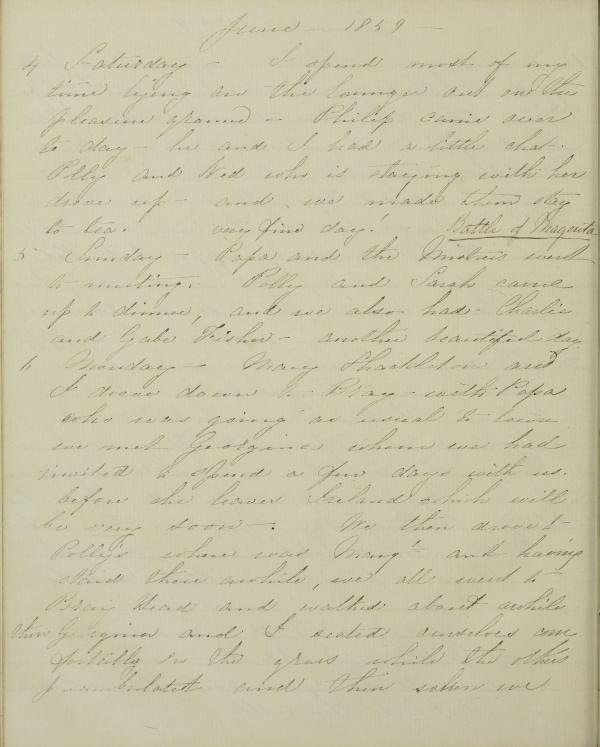 June - 1859 -
4 Saturday - I spend most of my
time lying on the lounger out on the
pleasure ground - Philip came over
to day - he and I had a little chat.
Polly and Ned who is staying with her
drove up - and we made them stay
to tea. very fine day! - Battle of Magenta
5 Sunday - Papa and the Mistress went
to meeting. Polly and Sarah came
up to dinner, and we also had Charlie
and Gabe Fisher - another beautiful day
6 Monday - Mary Shackleton and
I drove down to Bray - with Papa
who was going as usual to town
we met Georgina whom we had
invited to spend a few days with us.
before she leaves Ireland which will
be very soon -. We then drove to
Polly's where was and having
staid there awhile, we all went to
Bray Head and walked about awhile
then Georgina and I seated ourselves com
fortably on the grass while the others
perambulated and then when we